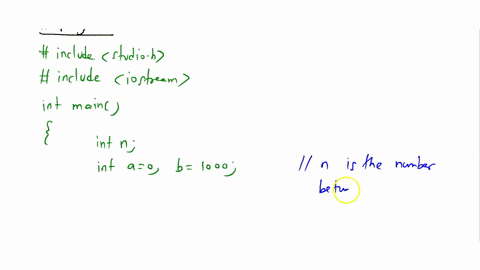 # include <studio.h>
# include <iostream>
int main()
{
int n;
int a=0, b=1000;
// n is the number
betw